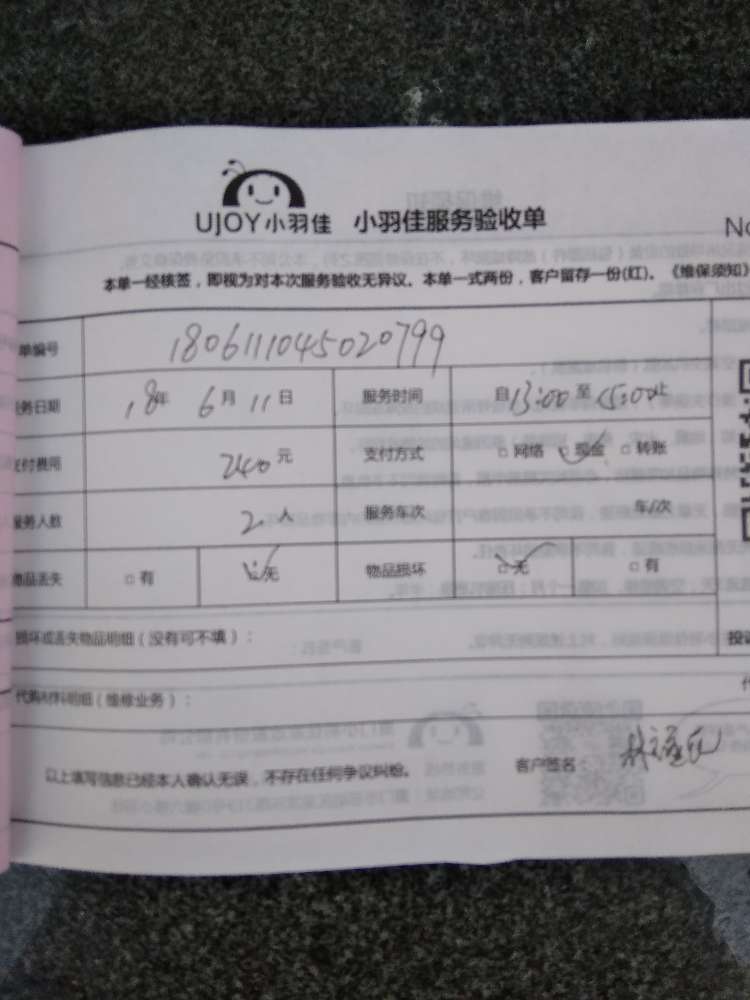 UJOY小羽佳 小羽佳服务验收单
No
本单一经核签，即视为对本次服务验收无异议。本单一式两份，客户留存一份(红)。《维保须知》
单编号 1806111045020799
服务日期 18年 6月 11日 服务时间 自13:00至15:00止
支付费用 240元 支付方式 □网络 □现金 □转账
服务人数 2人 服务车次 车/次
物品丢失 □有 □无 物品损坏 □无 □有
损坏或丢失物品明细（没有可不填）： 投诉
代购材料明细（维修业务）：
以上填写信息已经本人确认无误，不存在任何争议纠纷。 客户签名：